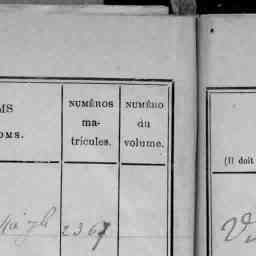 MS
OMS.
NUMÉROS
ma-
tricules.
NUMÉRO
du
volume.
(Il doit
2367